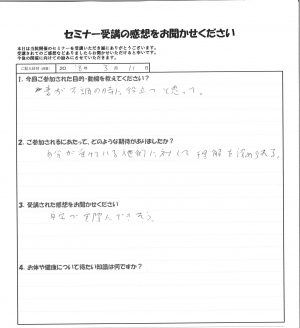 セミナー受講の感想をお聞かせください
本日は当院開催のセミナーを受講いただき誠にありがとうございます。
受講されてのご感想などをありましたらお聞かせいただけると幸いです。
今後の開催に向けての励みにさせていただきます。
20 年 3月 11日
1. 今回ご参加された目的・動機を教えてください?
妻が不調の時に役立つと思って。
2. ご参加されるにあたって、どのような期待がありましたか?
自分が受けている施術に対して理解を深められる。
3. 受講された感想をお聞かせください
自分が実際にできそう。
4. お体や健康について得たい知識は何ですか?